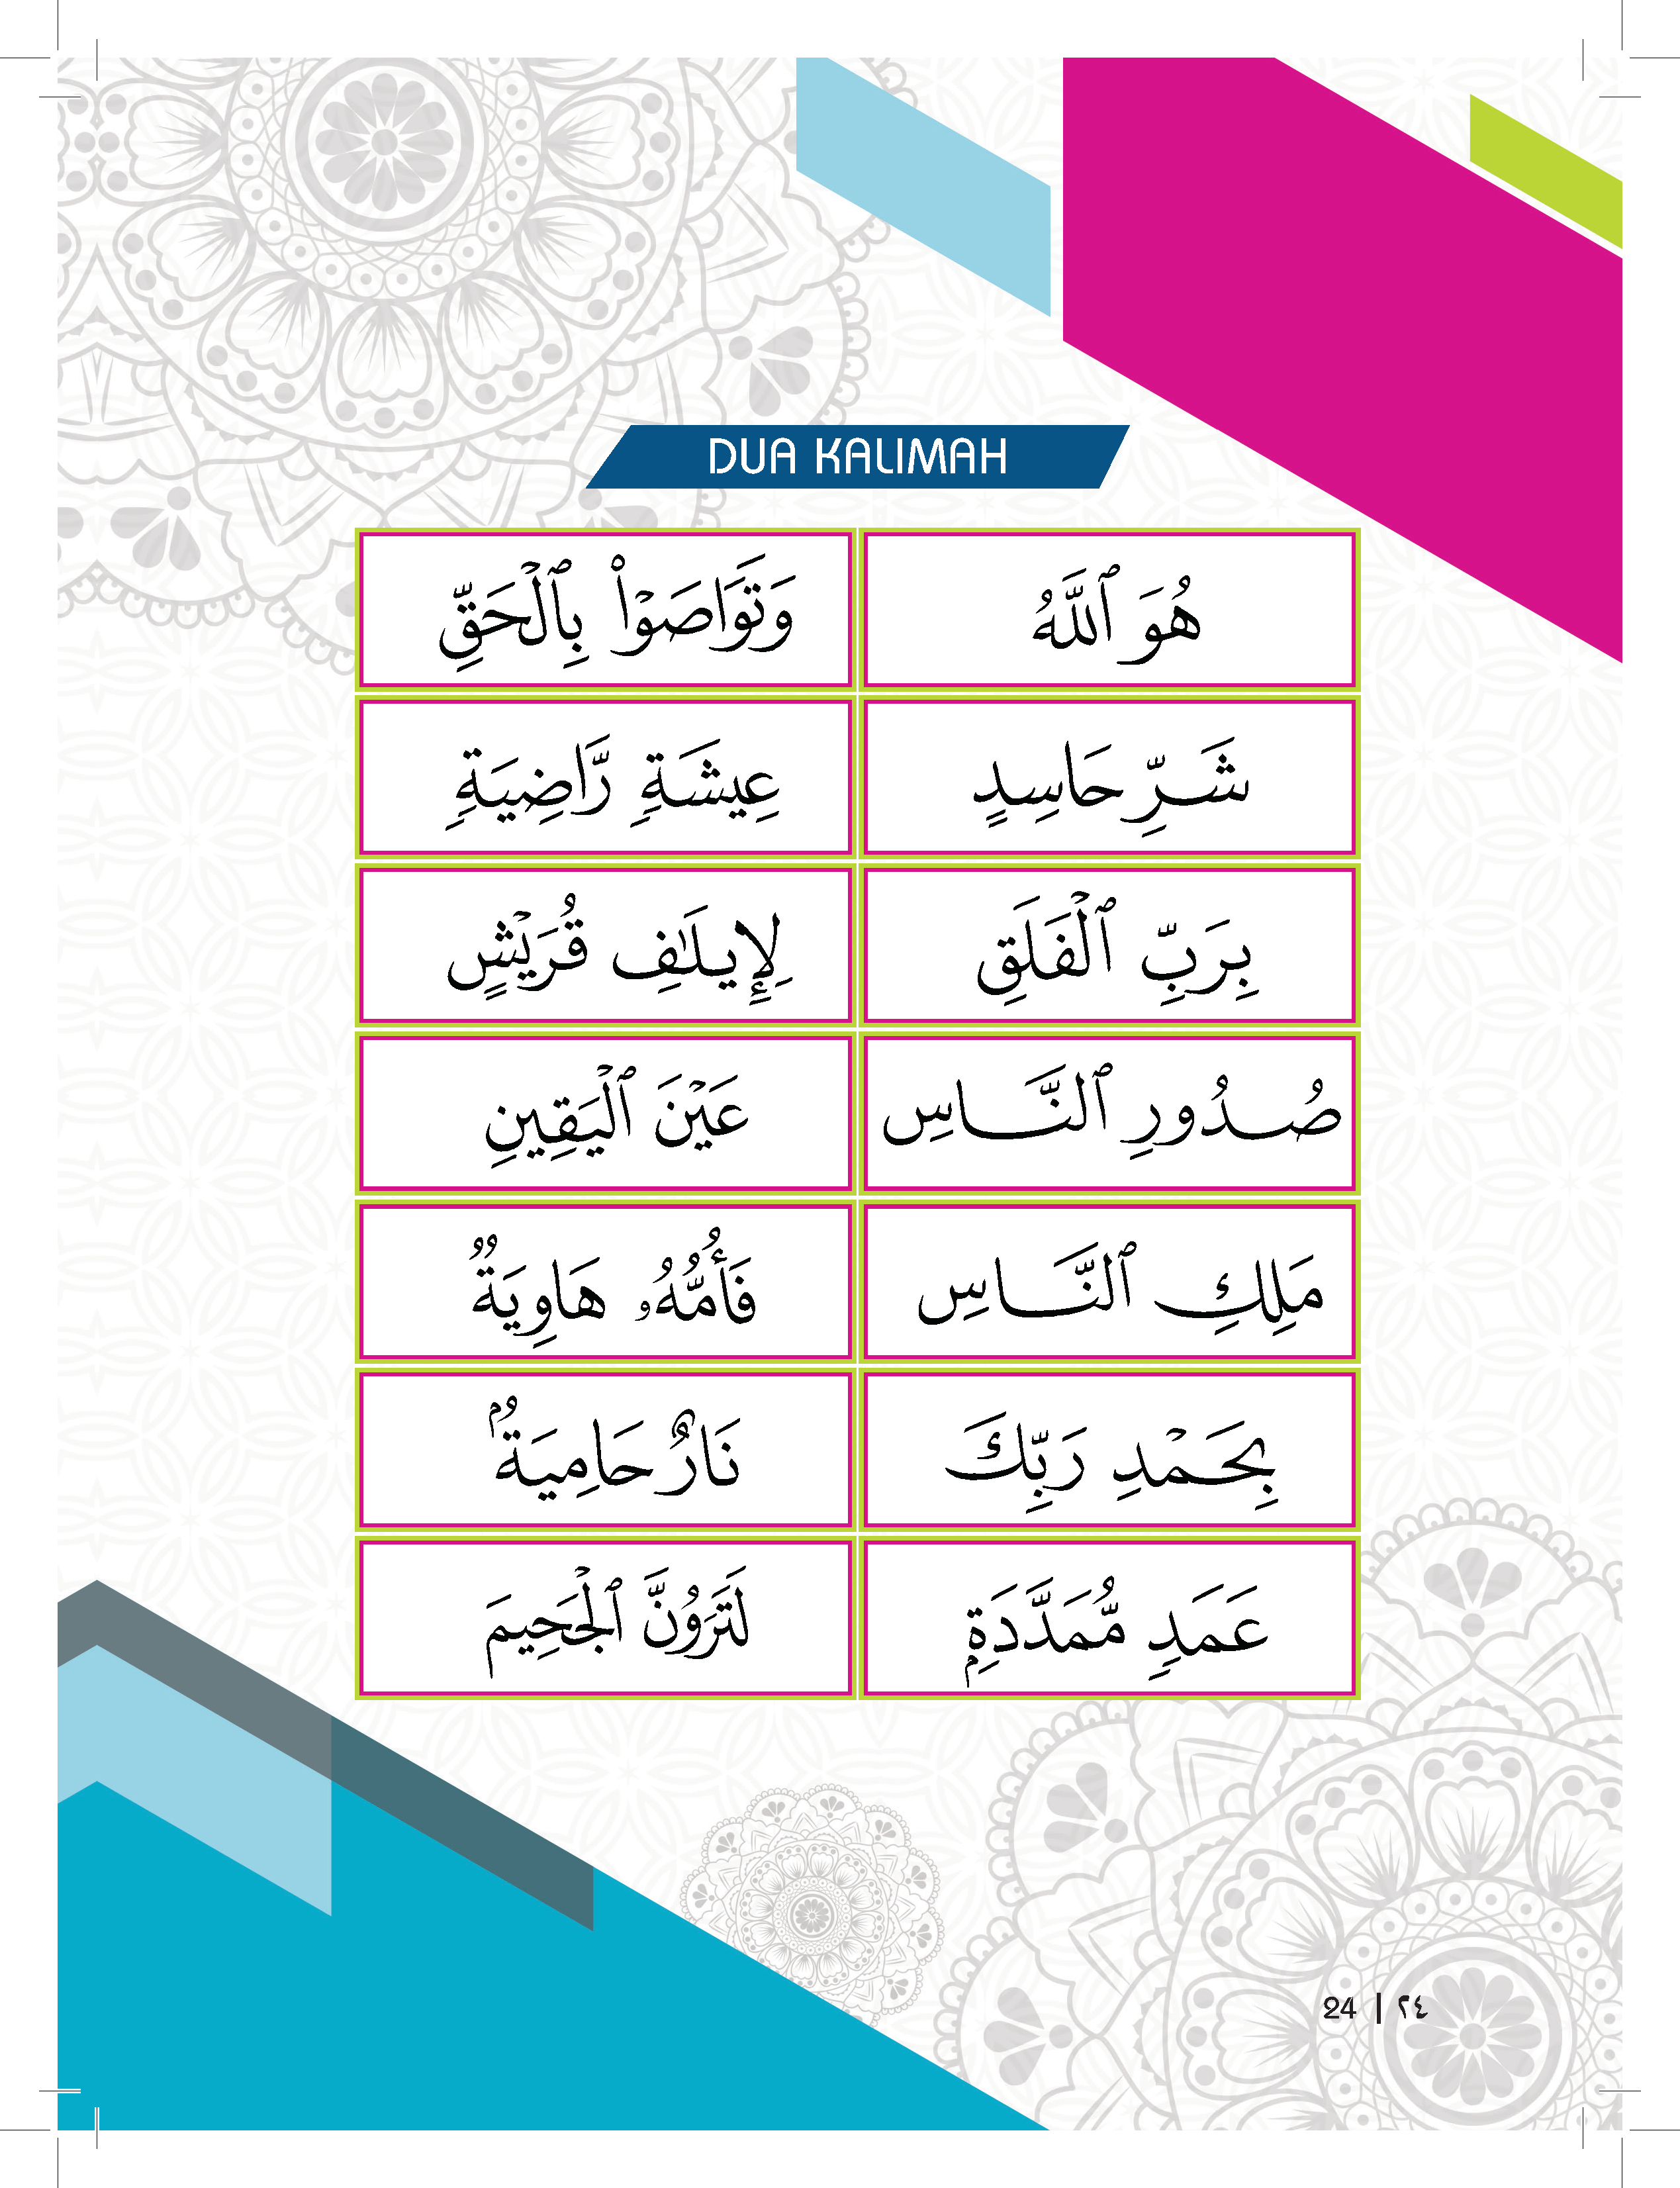 DUA KALIMAH
هُوَ ٱللَّهُ
وَتَوَاصَوْا۟ بِٱلْحَقِّ
شَرِّ حَاسِدٍ
عِيشَةٍ رَّاضِيَةٍ
بِرَبِّ ٱلْفَلَقِ
لِإِيلَـٰفِ قُرَيْشٍ
صُدُورِ ٱلنَّـاسِ
عَيْنَ ٱلْيَقِينِ
مَلِكِ ٱلنَّـاسِ
فَأُمُّهُۥ هَاوِيَةٌ
بِحَمْدِ رَبِّكَ
نَارٌ حَامِيَةُۢ
عَمَدٍ مُّمَدَّدَةِۭ
لَتَرَوُنَّ ٱلْجَحِيمَ
24 | ٢٤